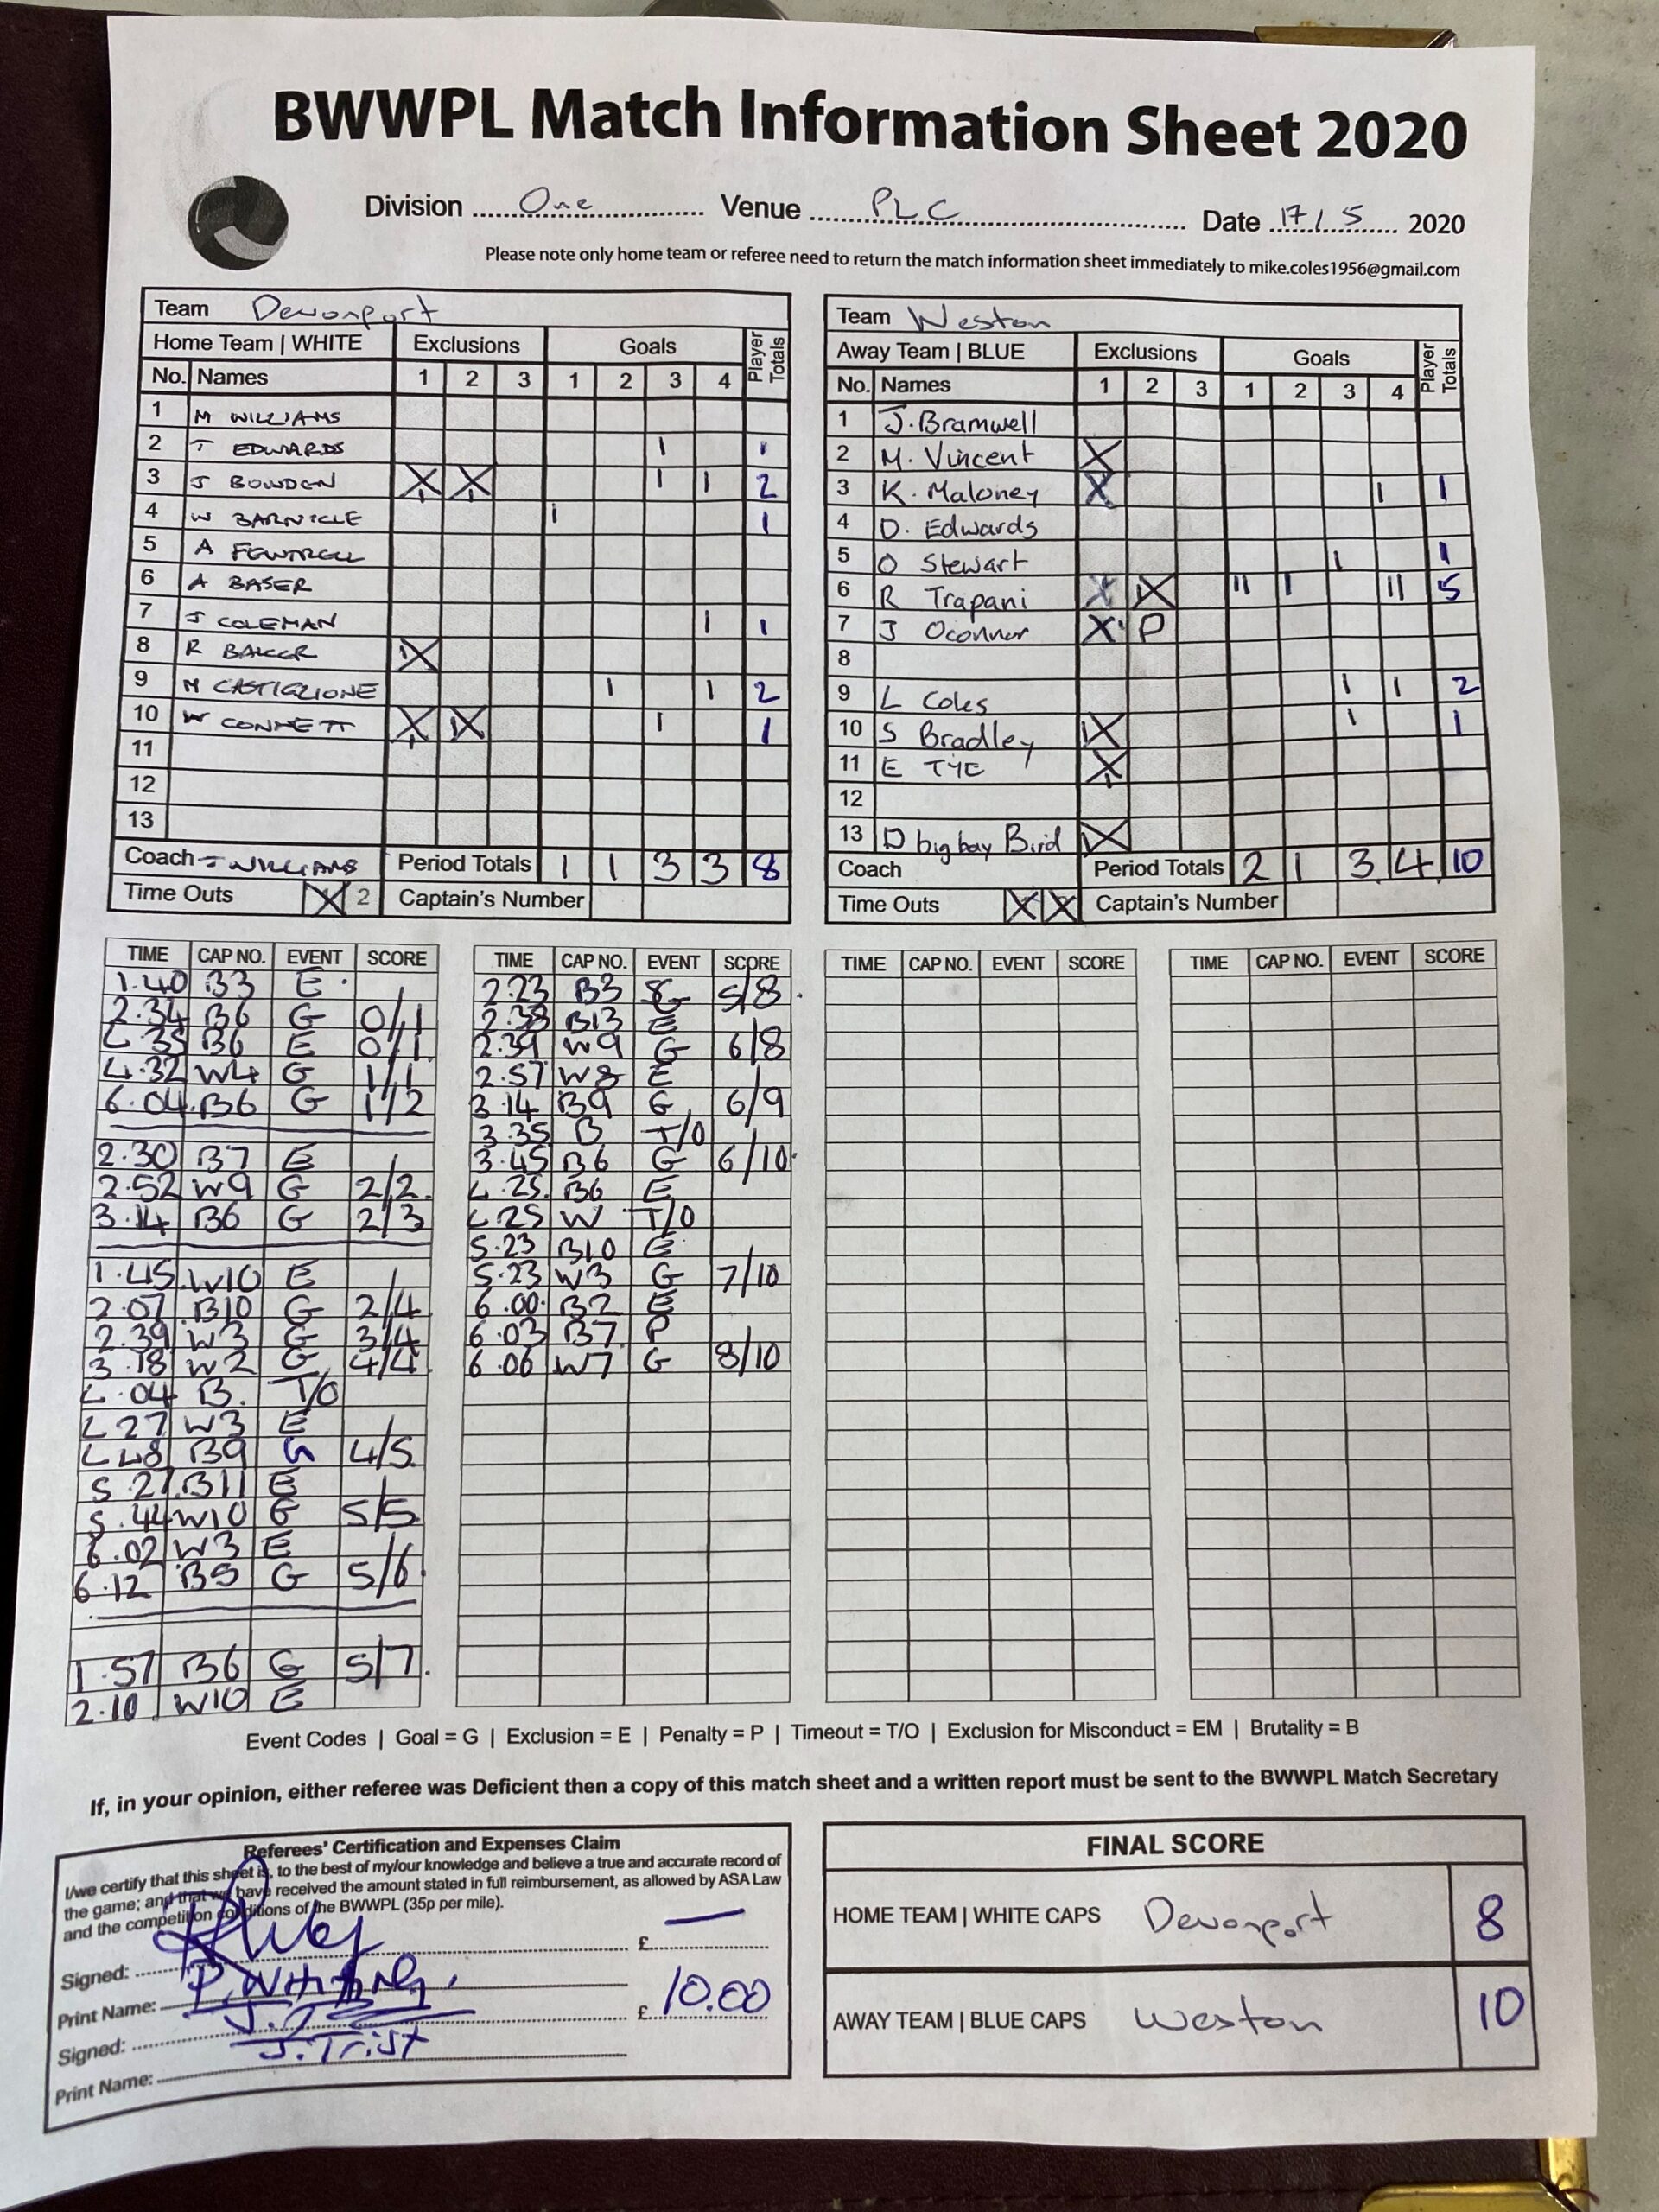 BWWPL Match Information Sheet 2020
Division One Venue PLC Date 17/5 2020
Please note only home team or referee need to return the match information sheet immediately to mike.coles1956@gmail.com
Team Devonport
Home Team | WHITE Exclusions Goals Player Totals
No. Names 1 2 3 1 2 3 4
1 M WILLIAMS
2 T EDWARDS 1 1
3 J BOWDEN X X 1 1 2
4 W BARNICLE 1 1
5 A
6 A BASER
7 J COLEMAN 1 1
8 R BAKER X
9 M CASTIGLIONE 1 1 2
10 W CONNETT X X 1 1
11
12
13
Coach - WILLIAMS Period Totals 1 1 3 3 8
Time Outs X 2 Captain's Number
Team Weston
Away Team | BLUE Exclusions Goals Player Totals
No. Names 1 2 3 1 2 3 4
1 J. Bramwell
2 M. Vincent X
3 K. Maloney X 1 1
4 D. Edwards
5 O Stewart 1 1
6 R Trapani X X 11 1 11 5
7 J Oconnor X P
8
9 L Coles 1 1 2
10 S Bradley X 1 1
11 E TYE X
12
13 D bigbay Bird X
Coach Period Totals 2 1 3 4 10
Time Outs X X Captain's Number
TIME CAP NO. EVENT SCORE
1.40 B3 E
2.34 B6 G 0/1
4.35 B6 E 0/1
4.32 W4 G 1/1
6.04 B6 G 1/2
2.30 B7 E
2.52 W9 G 2/2
3.14 B6 G 2/3
1.45 W10 E
2.07 B10 G 2/4
2.39 W3 G 3/4
3.18 W2 G 4/4
4.04 B. T/O
4.27 W3 E
4.48 B9 G 4/5
5.27 B11 E
5.44 W10 G 5/5
6.02 W3 E
6.12 B5 G 5/6
1.57 B6 G 5/7
2.10 W10 E
TIME CAP NO. EVENT SCORE
2.23 B3 G 5/8
2.38 B13 E
2.39 W9 G 6/8
2.57 W8 E
3.14 B9 G 6/9
3.35 B T/O
3.45 B6 G 6/10
4.25 B6 E
4.25 W T/O
5.23 B10 E
5.23 W3 G 7/10
6.00 B2 E
6.03 B7 P
6.06 W7 G 8/10
TIME CAP NO. EVENT SCORE
TIME CAP NO. EVENT SCORE
Event Codes | Goal = G | Exclusion = E | Penalty = P | Timeout = T/O | Exclusion for Misconduct = EM | Brutality = B
If, in your opinion, either referee was Deficient then a copy of this match sheet and a written report must be sent to the BWWPL Match Secretary
Referees' Certification and Expenses Claim
I/we certify that this sheet is, to the best of my/our knowledge and believe a true and accurate record of
the game; and that we have received the amount stated in full reimbursement, as allowed by ASA Law
and the competition conditions of the BWWPL (35p per mile).
Signed: £ —
Print Name: P.
Signed: £ 10.00
Print Name: J. Trist
FINAL SCORE
HOME TEAM | WHITE CAPS Devonport 8
AWAY TEAM | BLUE CAPS Weston 10